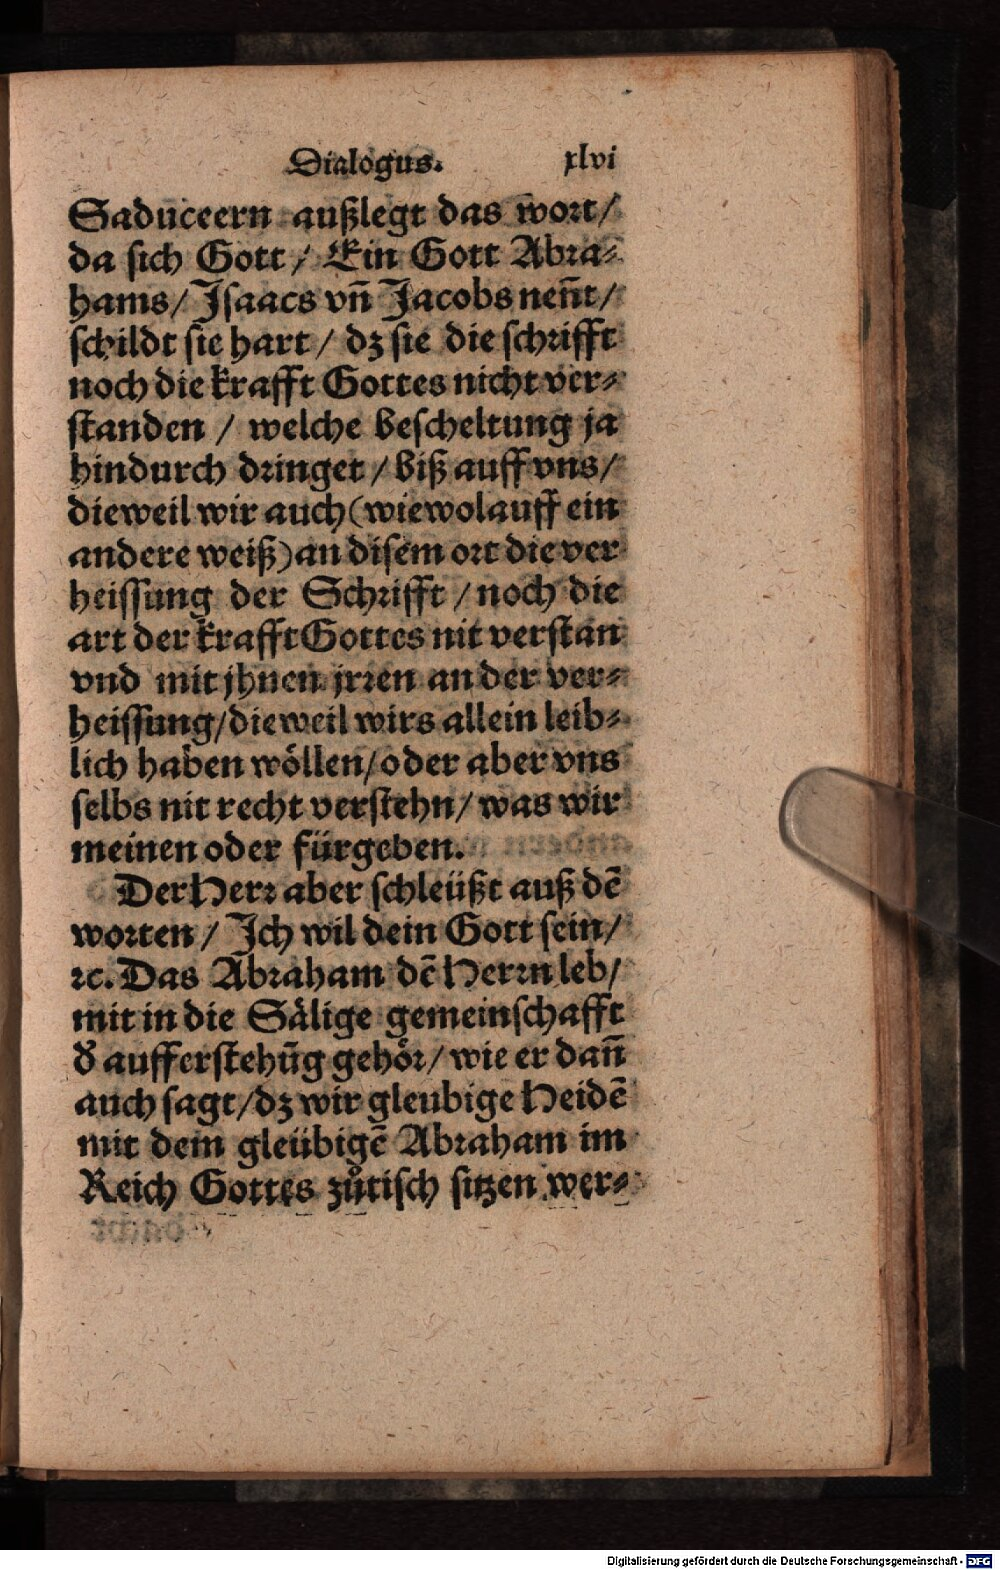 Dialogus. xlvi
Saduceern außlegt das wort/
da sich Gott/ Ein Gott Abra-
hams/ Isaacs vn̄ Jacobs nen̄t/
schildt sie hart/ dz sie die schrifft
noch die krafft Gottes nicht ver-
standen / welche bescheltung ja
hindurch dringet / biß auff vns/
dieweil wir auch (wiewol auff ein
andere weiß) an disem ort die ver
heissung der Schrifft / noch die
art der krafft Gottes nit verstan
vnd mit jhnen jrren an der ver-
heissung/ dieweil wirs allein leib-
lich haben wöllen/ oder aber vns
selbs nit recht verstehn/ was wir
meinen oder fürgeben.
Der Herr aber schleüßt auß dē
worten / Ich wil dein Gott sein/
ꝛc. Das Abraham dē Herrn leb/
mit in die Sälige gemeinschafft
d̕ aufferstehūg gehör/ wie er dan̄
auch sagt/ dz wir gleubige Heidē
mit dem gleübigē Abraham im
Reich Gottes zůtisch sitzen wer-
Digitalisierung gefördert durch die Deutsche Forschungsgemeinschaft - DFG